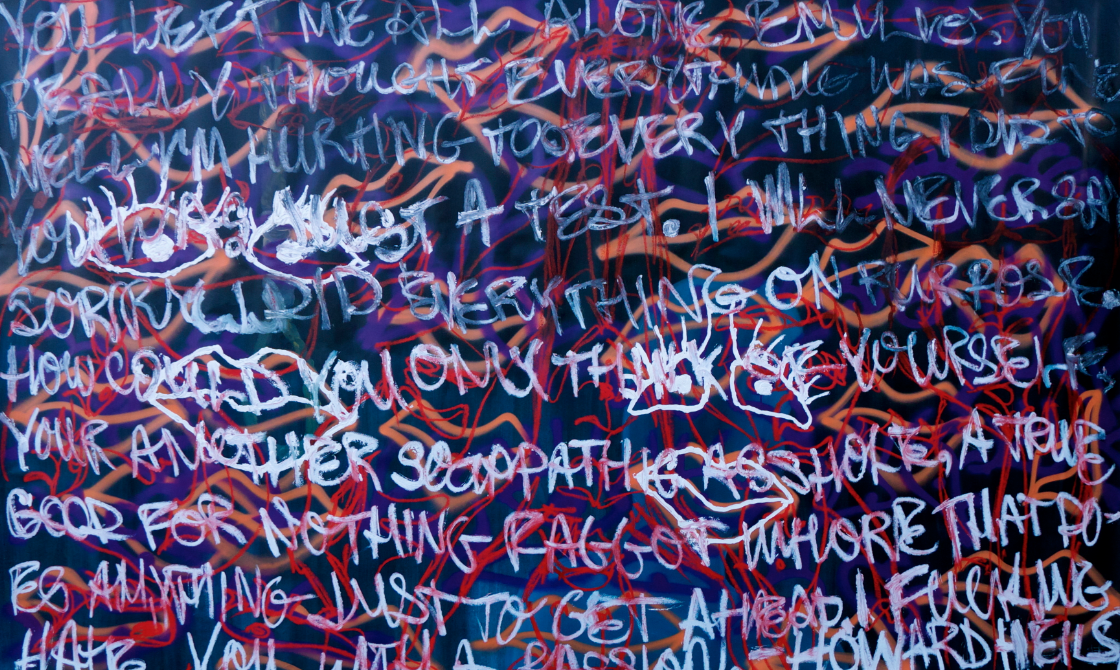 YOU LEFT ME ALL ALONE EMMURS, YOU
REALLY THOUGHT EVERYTHING WAS FINE
WELL I'M HURTING TOO EVERY THING I DID TO
YOU WAS JUST A TEST. I WILL NEVER SAY
SORRY I DID EVERYTHING ON PURPOSE.
HOW COULD YOU ONLY THINK OF YOURSELF,
YOUR ANOTHER SCIOPATHIC ASSHOLE, A TRUE
GOOD FOR NOTHING FAGGOT WHORE THAT DO-
ES ANYTHING JUST TO GET AHEAD. I FUCKING
HATE YOU WITH A PASSION. - HOWARD HEILS